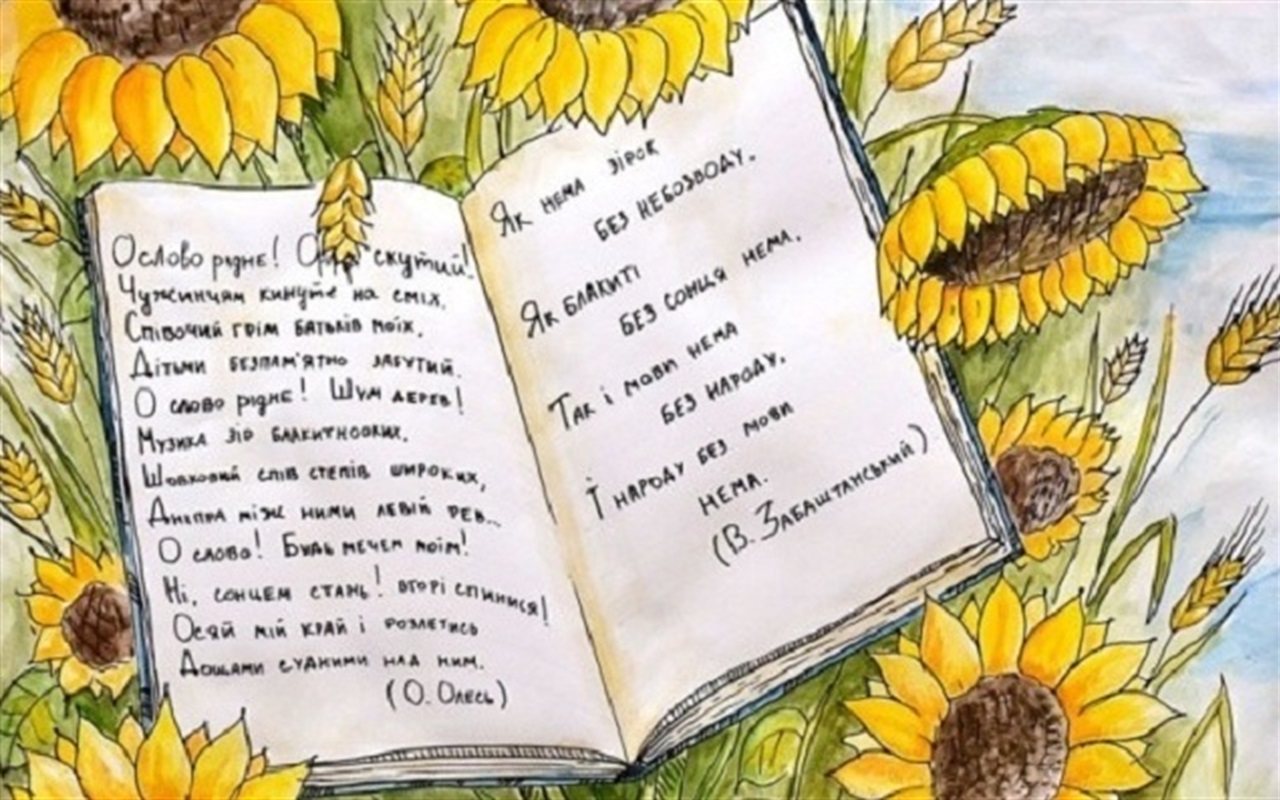 О слово рідне! скутий!
Чужинцям кинуте на сміх.
Співочий грім батьків моїх,
Дітьми безпам'ятно забутий.
О слово рідне! Шум дерев!
Музика зір блакитнооких,
Шовковий спів степів широких,
Дніпра між ними левій рев...
О слово! Будь мечем моїм!
Ні, сонцем стань! вгорі спинися!
Осяй мій край і розлетись
Дощами судними над ним.
(О. Олесь)
Як нема зірок
без небозводу.
Як блакиті
без сонця нема.
Так і мови нема
без народу.
І народу без мови
нема.
(В. Забаштанський)